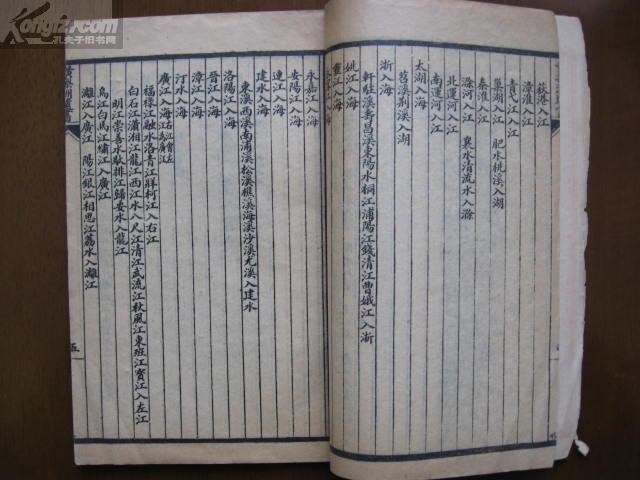 荻港入江
漳淮入江
青弋江入江
巢湖入江 肥水桃溪入湖
秦淮入江
滁河入江 襄水清流水入滁
北運河入江
南運河入江
太湖入海
苕溪荊溪入湖
浙入海
軒駐溪壽昌溪東陽水桐江浦陽江錢清江曹娥江入浙
姚江入海
靈江入海
永嘉江入海
安陽江入海
連江入海
建水入海
東溪西溪南浦溪松溪樵溪海溪沙溪尤溪入建水
洛陽江入海
晉江入海
漳江入海
汀水入海
廣江入海
福祿江融水洛青江牂柯江入右江
白石江瀟湘江龍江西江水八尺江清江武流江秋風江東班江寶江入左江
明江崇善水馱排江歸安水入龍江
烏江白馬江繡江入廣江
灕江入廣江 陽江銀江相思江荔水入灕江
五
Kongfz.com
孔夫子旧书网